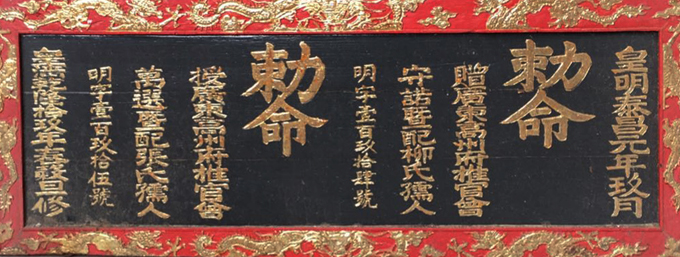 皇明泰昌元年玖月
勅命
贈廣東高州府推官曾
守誥暨配柳氏孺人
明字壹百玖拾肆號
勅命
授廣東高州府推官曾
萬選暨配張氏孺人
明字壹百玖拾伍號
皇清乾隆拾年春穀旦修